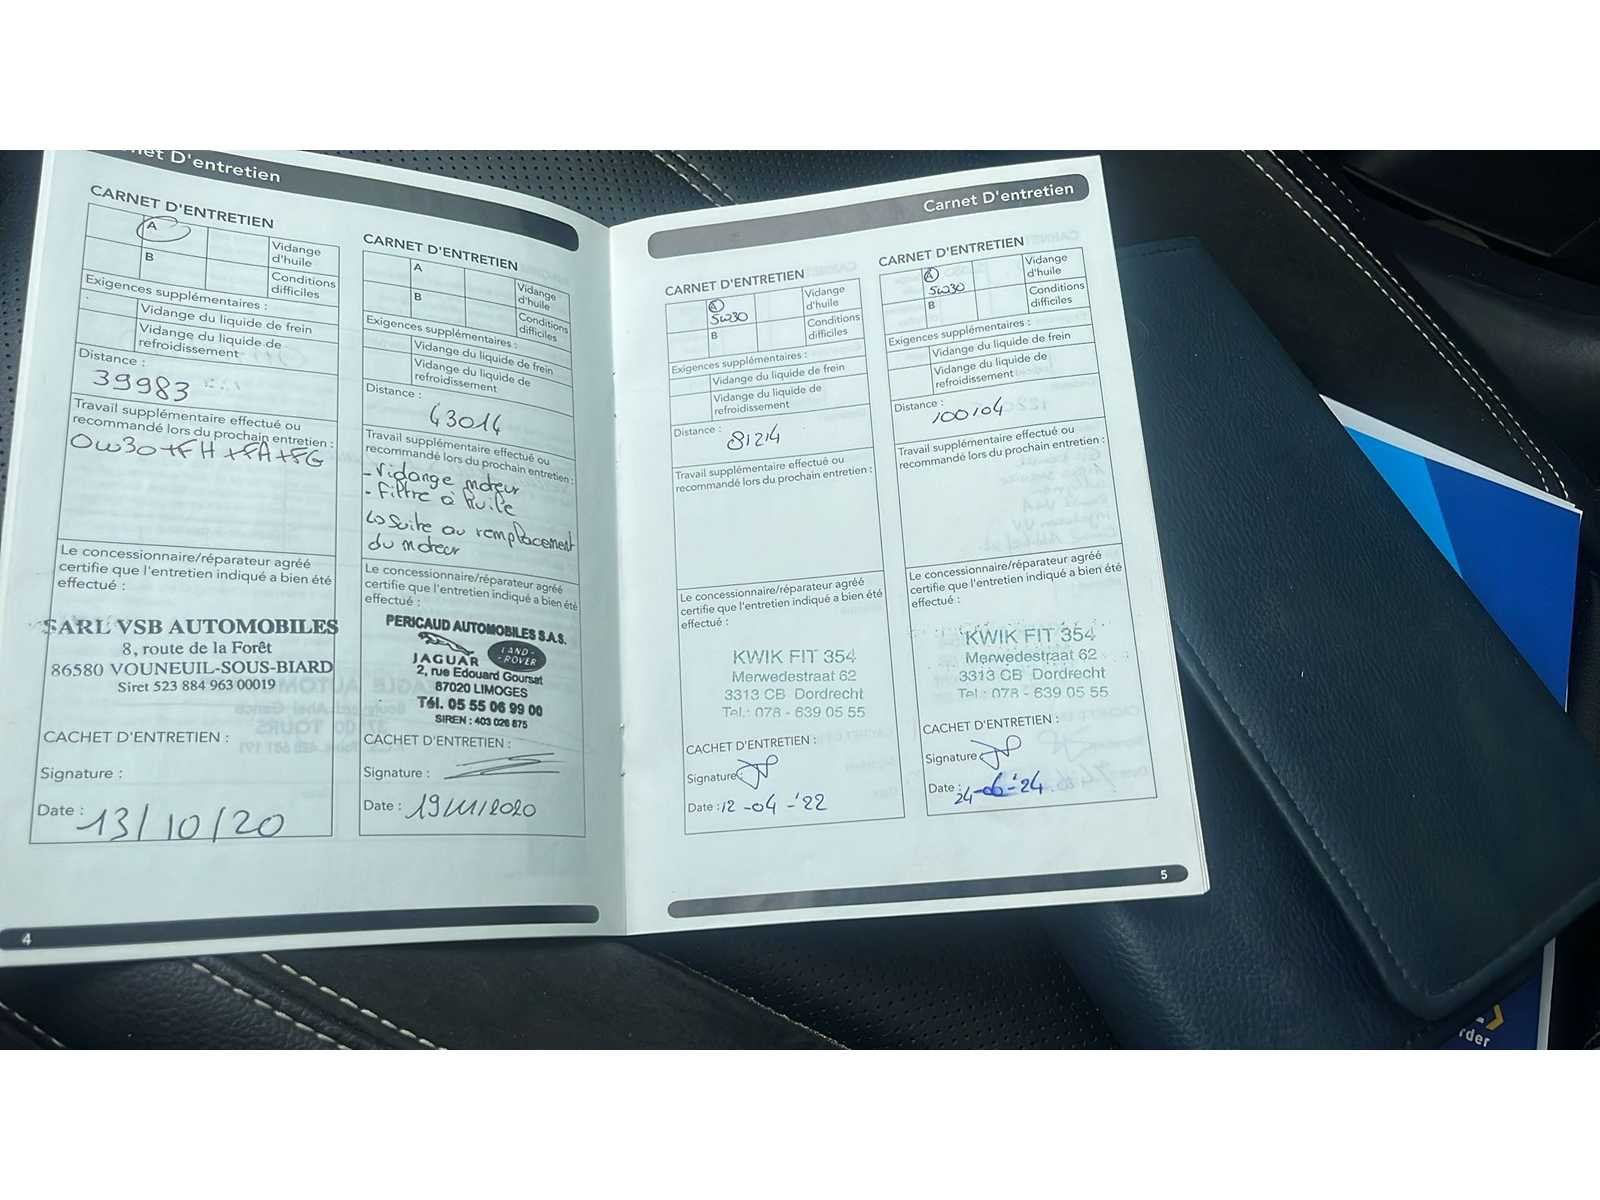 net D'entretien
CARNET D'ENTRETIEN
A
Vidange
d'huile
B
Conditions
difficiles
Exigences supplémentaires :
Vidange du liquide de frein
Vidange du liquide de
refroidissement
Distance :
39983
Travail supplémentaire effectué ou
recommandé lors du prochain entretien :
0w30+FH+FA+FG
Le concessionnaire/réparateur agréé
certifie que l'entretien indiqué a bien été
effectué :
SARL VSB AUTOMOBILES
8, route de la Forêt
86580 VOUNEUIL-SOUS-BIARD
Siret 523 884 963 00019
CACHET D'ENTRETIEN :
Signature :
Date :
13/10/20
4
CARNET D'ENTRETIEN
A
Vidange
d'huile
B
Conditions
difficiles
Exigences supplémentaires :
Vidange du liquide de frein
Vidange du liquide de
refroidissement
Distance :
43014
Travail supplémentaire effectué ou
recommandé lors du prochain entretien :
- Vidange moteur
- Filtre à huile
suite au remplacement
du moteur
Le concessionnaire/réparateur agréé
certifie que l'entretien indiqué a bien été
effectué :
PERICAUD AUTOMOBILES S.A.S.
JAGUAR
LAND-
-ROVER
2, rue Edouard Goursat
87020 LIMOGES
Tél. 05 55 06 99 00
SIREN : 403 026 875
CACHET D'ENTRETIEN :
Signature :
Date : 19/11/2020
Carnet D'entretien
CARNET D'ENTRETIEN
A
5w30
Vidange
d'huile
B
Conditions
difficiles
Exigences supplémentaires :
Vidange du liquide de frein
Vidange du liquide de
refroidissement
Distance :
81214
Travail supplémentaire effectué ou
recommandé lors du prochain entretien :
Le concessionnaire/réparateur agréé
certifie que l'entretien indiqué a bien été
effectué :
KWIK FIT 354
Merwedestraat 62
3313 CB Dordrecht
Tel.: 078 - 639 05 55
CACHET D'ENTRETIEN :
Signature :
Date : 12-04-'22
CARNET D'ENTRETIEN
A
5w30
Vidange
d'huile
B
Conditions
difficiles
Exigences supplémentaires :
Vidange du liquide de frein
Vidange du liquide de
refroidissement
Distance :
100104
Travail supplémentaire effectué ou
recommandé lors du prochain entretien :
Le concessionnaire/réparateur agréé
certifie que l'entretien indiqué a bien été
effectué :
KWIK FIT 354
Merwedestraat 62
3313 CB Dordrecht
Tel.: 078 - 639 05 55
CACHET D'ENTRETIEN :
Signature
Date :
24-06-'24
5
rder